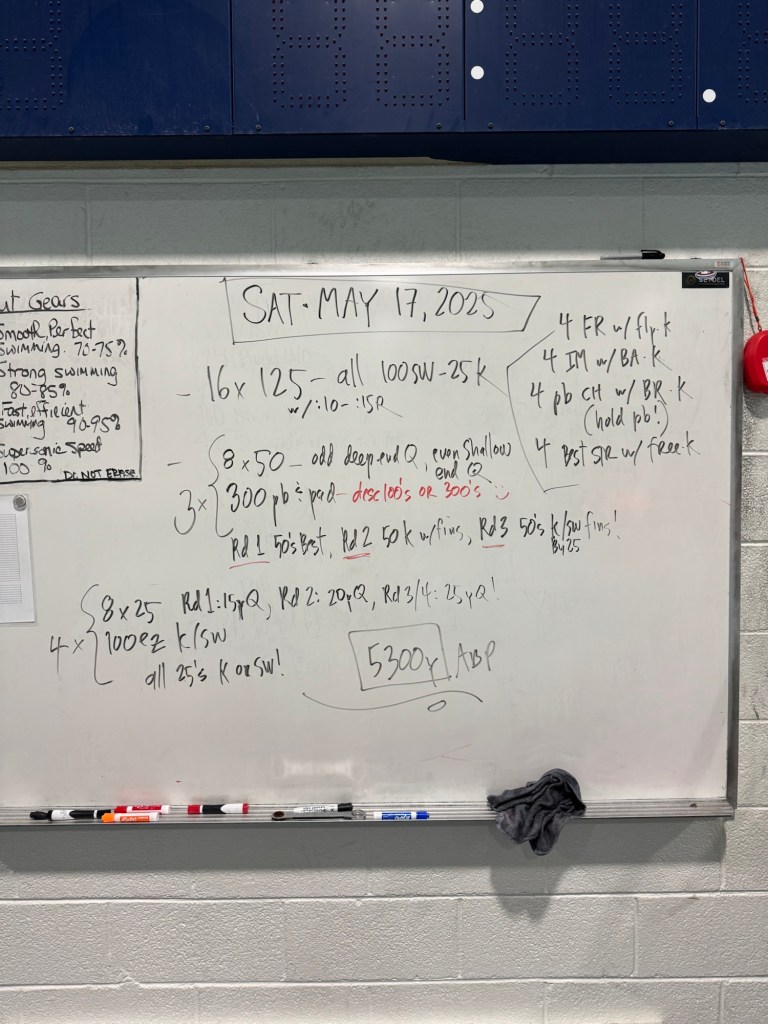 ut Gears
Smooth, Perfect
Swimming. 70-75%
Strong swimming
80-85%
Fast, efficient
Swimming 90-95%
Supersonic Speed
100 %
DO NOT ERASE
SAT. MAY 17, 2025
- 16 x 125 - all 100 SW - 25 K
w/ :10 - :15R
4 FR w/ fly. K
4 IM w/ BA. K
4 pb CH w/ BR. K
(hold pb!)
4 Best STR w/ free. K
- 8 x 50 - odd deep end Q, even shallow
end Q
3 x 300 pb & pad - desc 100's OR 300's
Rd 1 50's Best, Rd 2 50 K w/ fins, Rd 3 50's K/SW fins!
By 25
8 x 25 Rd 1: 15y Q, Rd 2: 20y Q, Rd 3/4: 25y Q!
4 x 100 ez K/SW
all 25's K or SW!
5300y ABP